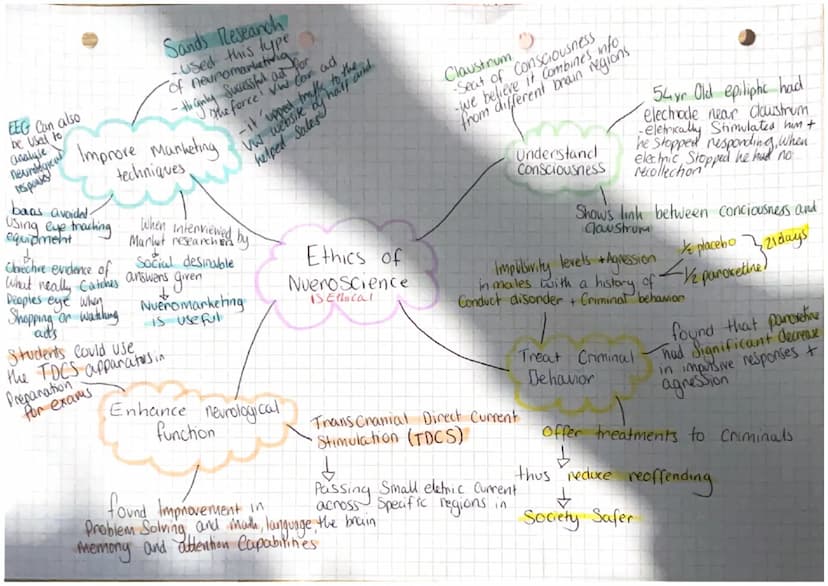 Sands Research
- Used this type
of neuromarketing
- highly successful ad for
'the force' VW car ad
- It upped traffic to the
VW website by half and
helped Sales
EEG Can also
be used to
analyse
neurological
responses
Improve Marketing
techniques
baas avoided
Using eye tracking
equipment
Objective evidence of
What really Catches
Peoples eye when
Shopping or watching
ads
When interviewed by
Market researchers
Social desirable
answers given
Nueromarketing
is useful
Claustrum
- Seat of consciousness
- We believe it combines info
from different brain regions
Understand
consciousness
54yr Old epileptic had
electrode near Claustrum
- eletrically Stimulated him +
he Stopped responding, when
electric Stopped he had no
recollection
Shows link between conciousness and
Claustrum
Ethics of
Nueroscience
is Ethical
Impulsivity levels + Agression
in males with a history of
Conduct disorder + Criminal behavior
1/2 placebo
1/2 paroxetine
21 days
Treat Criminal
Behavior
found that paroxetine
had significant decrease
in impulsive responses +
agression
Offer treatments to Criminals
thus reduce reoffending
Society Safer
Students could use
the TDCS apparatus in
Preparation
for exams
Enhance neurological
function
TransCranial Direct Current
Stimulation (TDCS)
Passing Small eletric current
across Specific regions in
the brain
found Improvement in
Problem Solving and math, language,
Memory and attention Capabilities